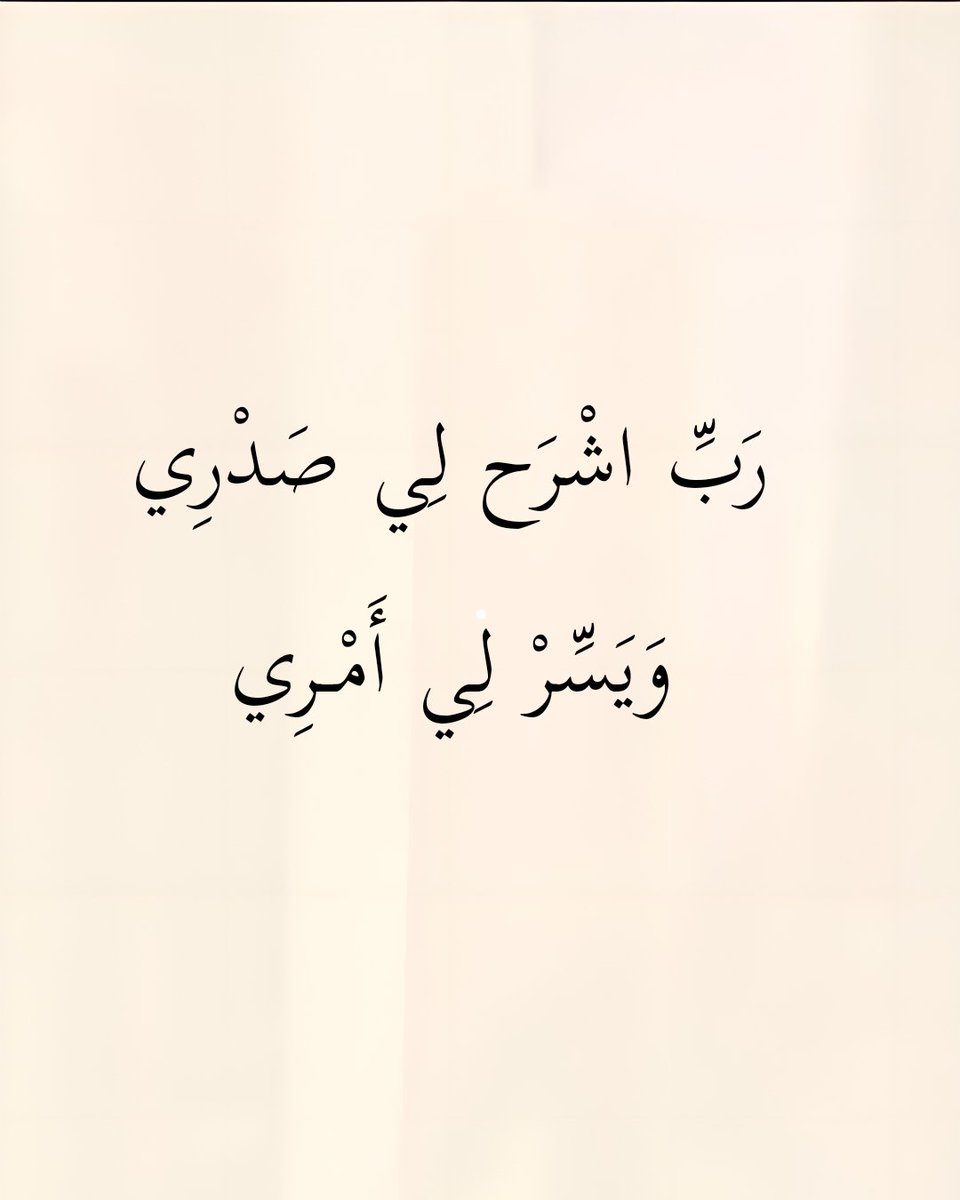 رَبِّ اشْرَح لِي صَدْرِي
وَيَسِّرْ لِي أَمْـرِي